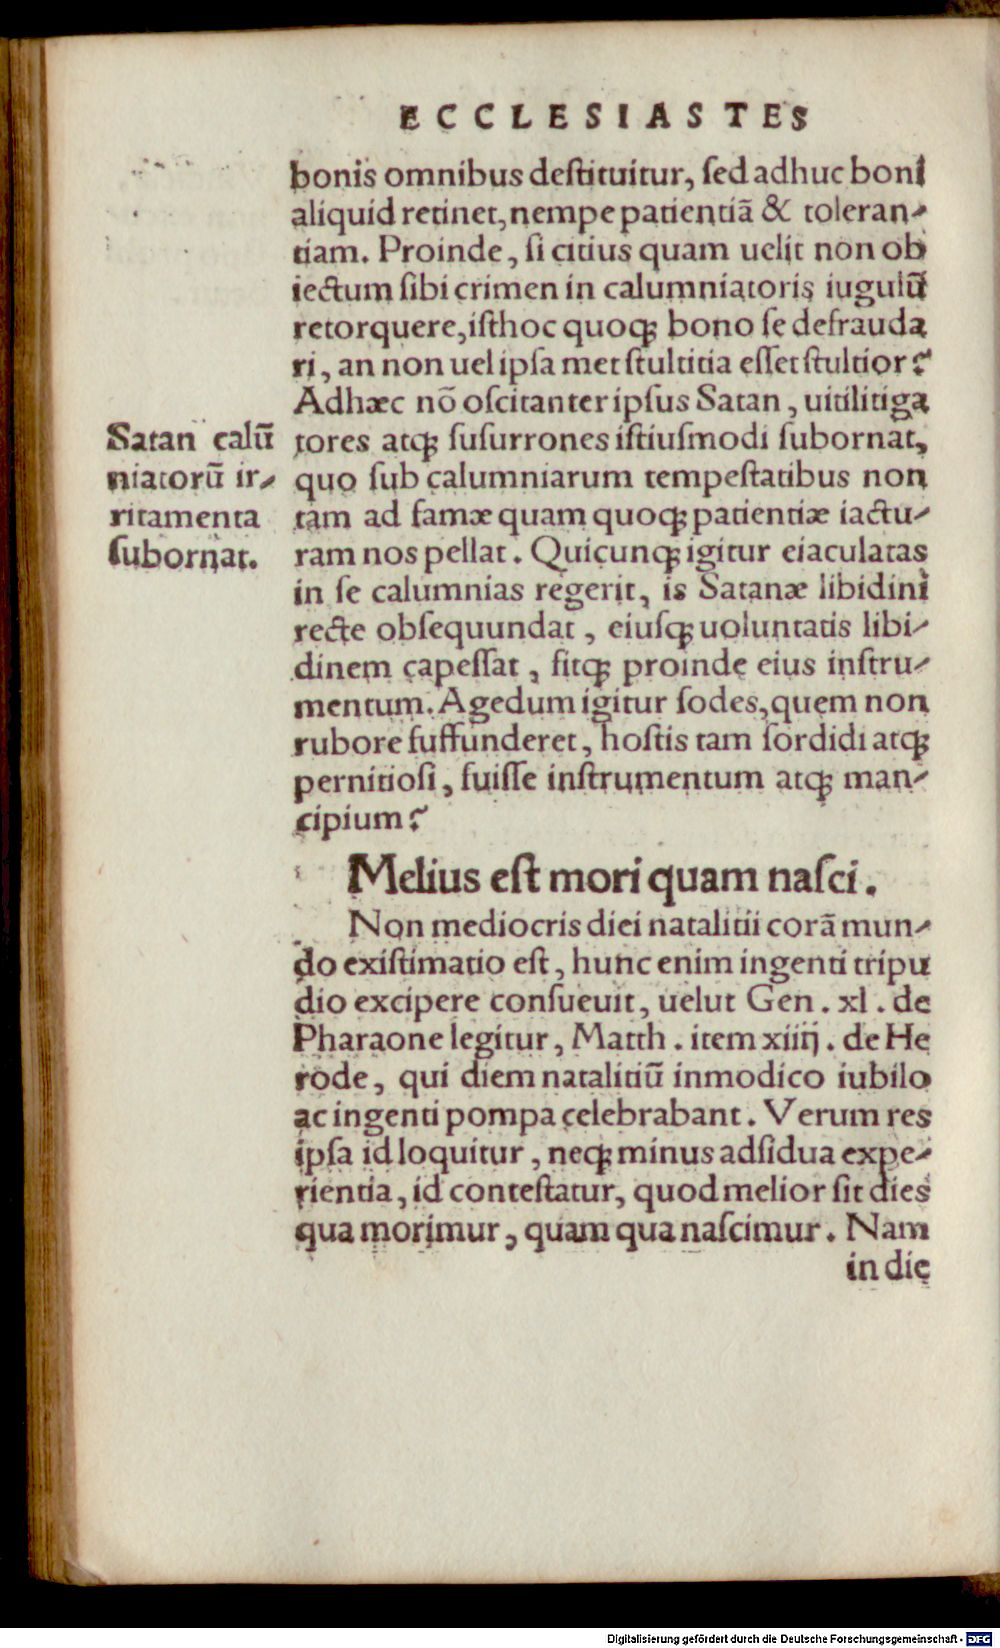 ECCLESIASTES
bonis omnibus deſtituitur, ſed adhuc boni
aliquid retinet, nempe patientiā & toleran-
tiam. Proinde, ſi citius quam uelit non ob
iectum ſibi crimen in calumniatoris iugulū
retorquere, iſthoc quoqꝫ bono ſe defrauda
ri, an non uel ipſa met ſtultitia eſſet ſtultior?
Adhæc nō oſcitanter ipſus Satan, uitilitiga
tores atqꝫ ſuſurrones iſtiuſmodi ſubornat,
quo ſub calumniarum tempeſtatibus non
tam ad famæ quam quoqꝫ patientiæ iactu-
ram nos pellat. Quicunqꝫ igitur eiaculatas
in ſe calumnias regerit, is Satanæ libidini
recte obſequundat, eiuſqꝫ uoluntatis libi-
dinem capeſſat, ſitqꝫ proinde eius inſtru-
mentum. Agedum igitur ſodes, quem non
rubore ſuffunderet, hoſtis tam ſordidi atqꝫ
pernitioſi, fuiſſe inſtrumentum atqꝫ man-
cipium?
Satan calū
niatorū ir-
ritamenta
ſubornat.
Melius eſt mori quam naſci.
Non mediocris diei natalitii corā mun-
do exiſtimatio eſt, hunc enim ingenti tripu
dio excipere conſueuit, uelut Gen. xl. de
Pharaone legitur, Matth. item xiiij. de He
rode, qui diem natalitiū inmodico iubilo
ac ingenti pompa celebrabant. Verum res
ipſa id loquitur, neqꝫ minus adſidua expe-
rientia, id conteſtatur, quod melior ſit dies
qua morimur, quam qua naſcimur. Nam
in die
Digitalisierung gefördert durch die Deutsche Forschungsgemeinschaft - DFG